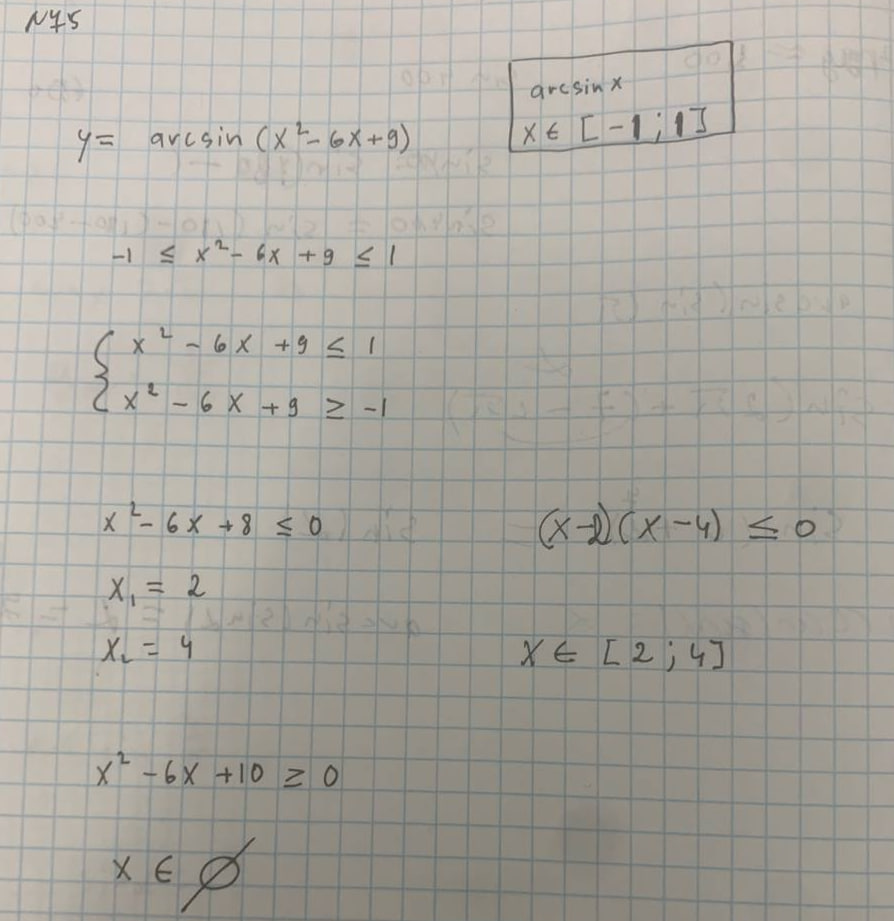 N75
arcsin x
x ∈ [-1; 1]
y = arcsin (x² - 6x + 9)
-1 ≤ x² - 6x + 9 ≤ 1
{ x² - 6x + 9 ≤ 1
x² - 6x + 9 ≥ -1
x² - 6x + 8 ≤ 0
(x-2)(x-4) ≤ 0
x₁ = 2
x₂ = 4
x ∈ [2; 4]
x² - 6x + 10 ≥ 0
x ∈ ∅